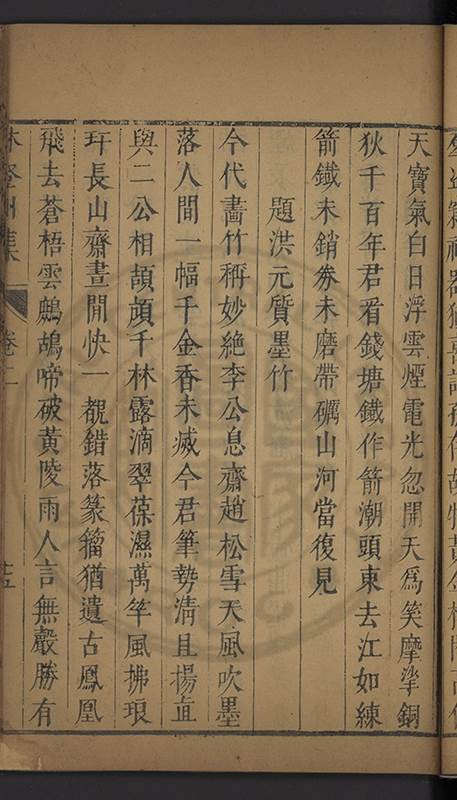 天寶氣白日浮雲煙電光忽開天爲笑摩挲銅
狄千百年君看錢塘鐵作箭潮頭東去江如練
箭鐵未銷券未磨帶礪山河當復見
題洪元質墨竹
今代畵竹稱妙絕李公息齋趙松雪天風吹墨
落人間一幅千金香未滅今君筆勢淸且揚直
與二公相頡頏千林露滴翠葆濕萬竿風拂琅
玕長山齋晝閒快一覩錯落篆籀猶遺古鳳凰
飛去蒼梧雲鷓鴣啼破黃陵雨人言無聲勝有
集 卷二 十五